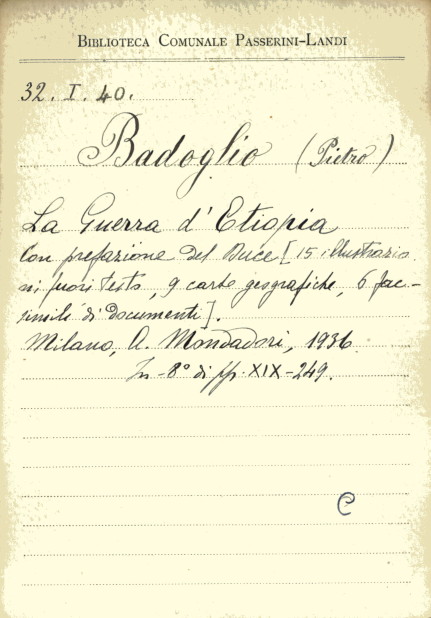 BIBLIOTECA COMUNALE PASSERINI-LANDI
32. I. 40.
Badoglio (Pietro)
La Guerra d'Etiopia
Con prefazione del Duce [15 illustrazio
ni fuori testo, 9 carte geografiche, 6 fac-
simili di documenti].
Milano, A. Mondadori, 1936
In-8° di pp. XIX-249.
C